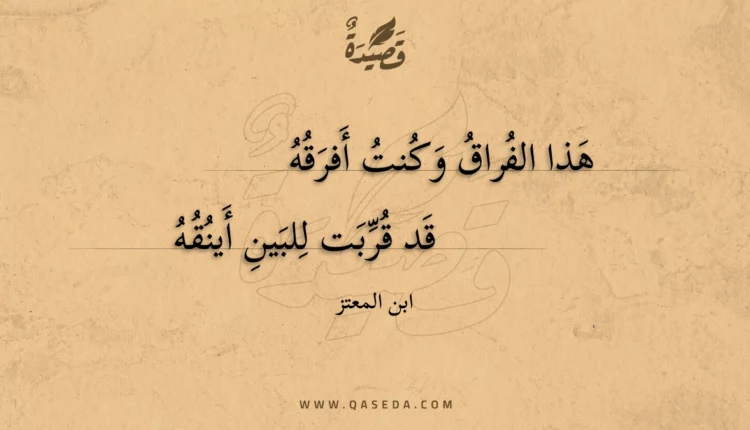 قَصِيْدَةٌ
هَذا الفُراقُ وَكُنتُ أَفرَقُهُ
قَد قُرِّبَت لِلبَينِ أَينُقُهُ
ابن المعتز
WWW.QASEDA.COM